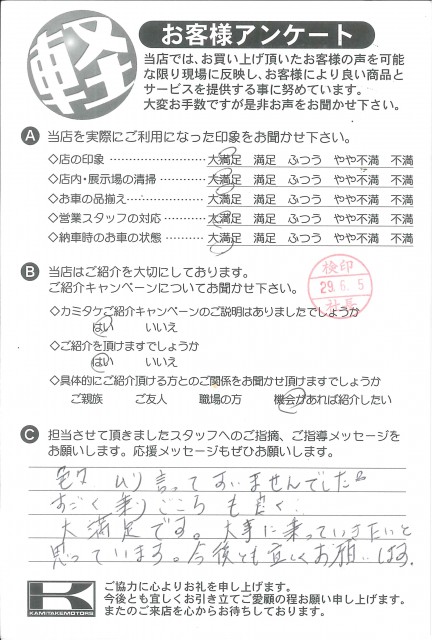 軽
お客様アンケート
当店では、お買い上げ頂いたお客様の声を可能
な限り現場に反映し、お客様により良い商品と
サービスを提供する事に努めています。
大変お手数ですが是非お声をお聞かせ下さい。
A 当店を実際にご利用になった印象をお聞かせ下さい。
◇店の印象 大満足 満足 ふつう やや不満 不満
◇店内・展示場の清掃 大満足 満足 ふつう やや不満 不満
◇お車の品揃え 大満足 満足 ふつう やや不満 不満
◇営業スタッフの対応 大満足 満足 ふつう やや不満 不満
◇納車時のお車の状態 大満足 満足 ふつう やや不満 不満
B 当店はご紹介を大切にしております。
ご紹介キャンペーンについてお聞かせ下さい。
検印
29.6.5
社長
◇カミタケご紹介キャンペーンのご説明はありましたでしょうか
はい いいえ
◇ご紹介を頂けますでしょうか
はい いいえ
◇具体的にご紹介頂ける方とのご関係をお聞かせ頂けますでしょうか
ご親族 ご友人 職場の方 機会があれば紹介したい
C 担当させて頂きましたスタッフへのご指摘、ご指導メッセージを
お願いします。応援メッセージもぜひお願いします。
色々 ムリ言ってすいませんでした。
すごく乗りごこちも良く
大満足です。大事に乗っていきたいと
思っています。今後とも宜しくお願いします。
K
KAMITAKEMOTORS
ご協力に心よりお礼を申し上げます。
今後とも宜しくお引き立てご愛顧の程お願い申し上げます。
またのご来店を心からお待ちしております。